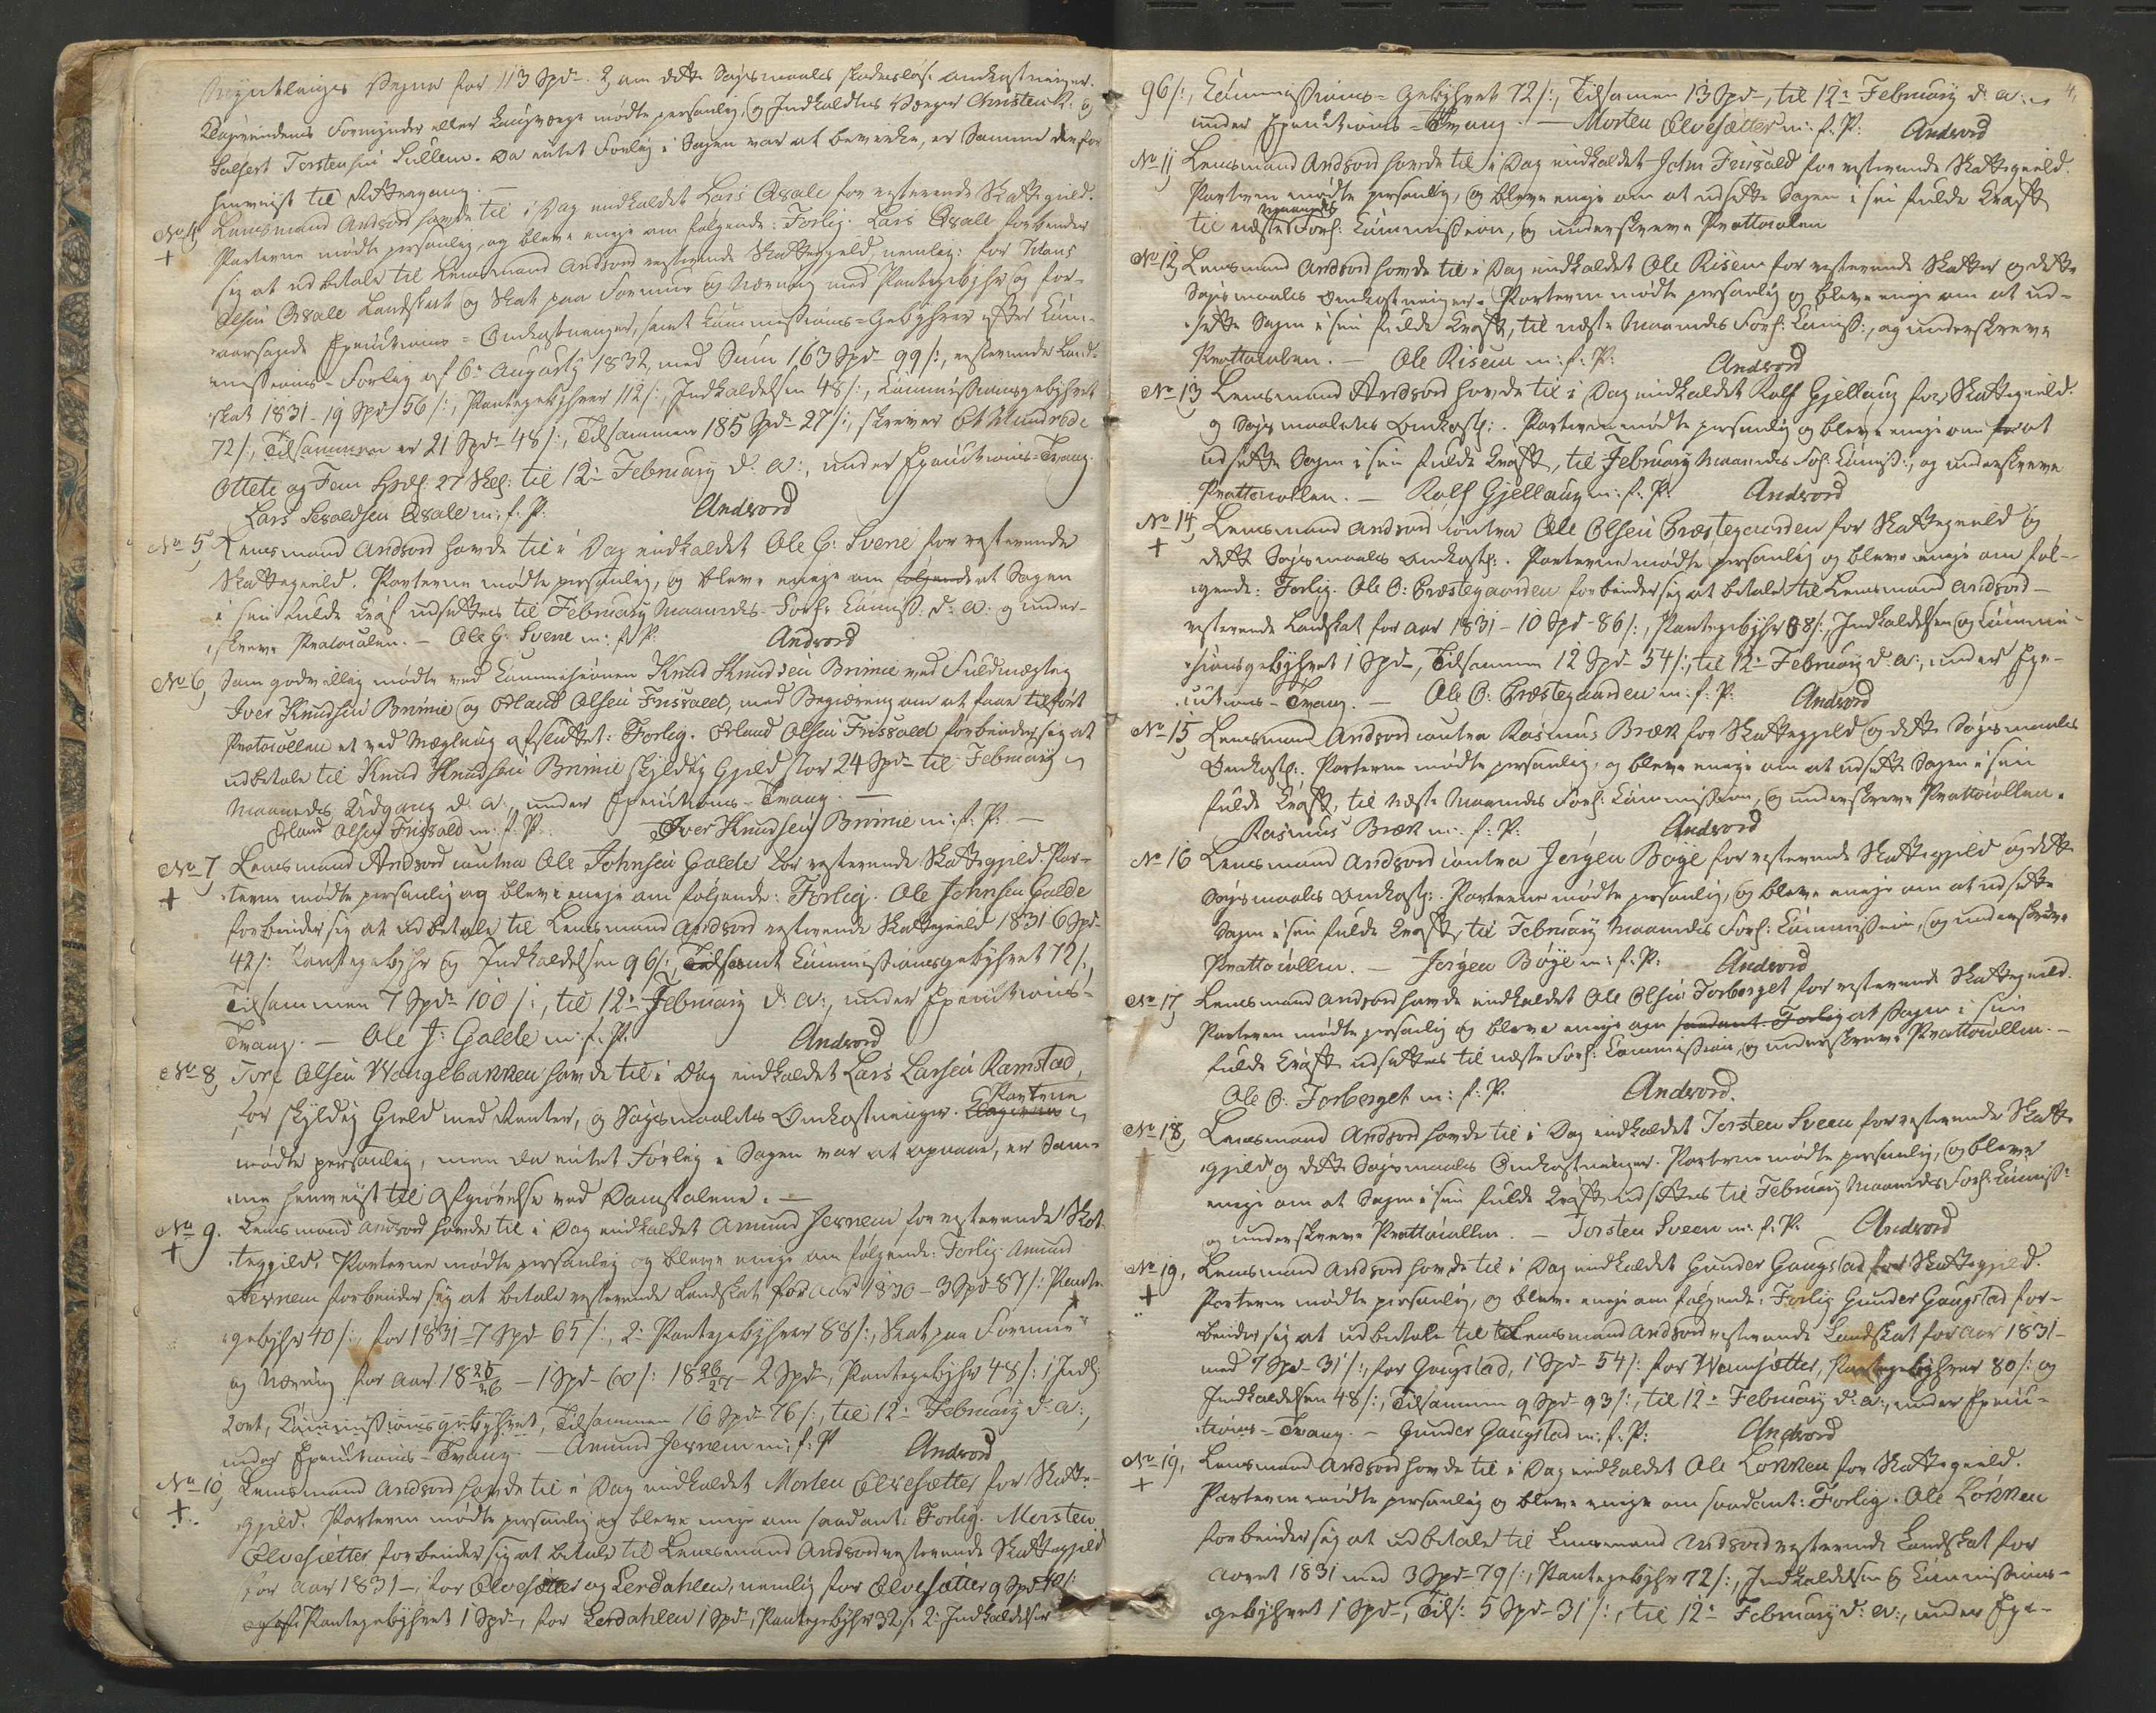 Myntlinges Vegne for 113 Spd. & om dette Søgsmaals skadesløse Omkostninger.
Klagerindens Formynder eller Laugværge mødte personlig, og Indkaldtes Værger Christen R: og
Salfest Torstensen Sullem. Da intet Forlig i Sagen var at bevirke, er Samme derfor
henviist til Rettergang. —
No 4, Lensmand Andvord havde til i Dag indkaldet Lars Qvale for resterende Skattegield.
+ Parterne mødte personlig, og bleve enige om følgende: Forlig. Lars Qvale forbinder
sig at udbetale til Lensmand Andvord resterende Skattegjeld, nemlig: for Hans
Olsen Qvale Landskat og Skat paa Formue og Næring med Pantegebyhr og for-
aarsagede Executions-Omkostninger, samt Commissions-Gebyhrer efter Com-
missions-Forlig af 6te Augusty 1832, med Sum 163 Spd- 99 /:, resterende Land-
skat 1831- 19 Spd- 56 /:, Pantegebyhrer 112 /:, Indkaldelsen 48 /:, Commissionsgebyhret
72 /:, Tilsammen er 21 Spd- 48 /:, Tilsammen 185 Spd- 27 /:, skriver Et Hundrede
Ottete og Fem Spdl: 27 Skl: til 12te February d: A:, under Executions-Tvang.
Lars Sevaldsen Qvale m: f: P: Andvord
No 5, Lensmand Andvord havde til i Dag indkaldet Ole G: Svene for resterende
Skattegield. Parterne mødte personlig, og bleve enige om følgende at Sagen
i sin fulde Kraf udsættes til February Maaneds Forl: Commiss: d: A: og under-
skreve Protocolen. — Ole G: Svene m: f: P: Andvord
No 6, Som godvillig mødte ved Commissionen Knud Knudsen Brimie ved Fuldmægtig
Iver Knudsen Brimie og Erland Olsen Frisvold, med Begiæring om at faae tilført
Protocollen et ved Mægling afsluttet: Forlig. Erland Olsen Frisvold forbinder sig at
udbetale til Knud Knudsen Brimie skyldig Gjeld stor 24 Spd- til February
Maaneds Udgang d: A:, under Executions-Tvang. —
Erland Olsen Frisvold m: f: P: Iver Knudsen Brimie m: f: P: —
No 7, Lensmand Andvord contra Ole Johnsen Galde for resterende Skattegjeld. Par-
+ terne mødte personlig og bleve enige om følgende: Forlig. Ole Johnsen Galde
forbinder sig at udbetale til Lensmand Andvord resterende Skattegield 1831 6 Spd-
42 /: Pantegebyhr og Indkaldelsen 96 /:, Tilsamt Commissionsgebyhret 72 /:,
Tilsammen 7 Spd- 100 /:, til 12te February d: A:, under Executions-
Tvang. — Ole J: Galde m: f: P: Andvord
No 8, Tore Olsen Wangebakken havde til i Dag indkaldet Lars Larsen Ramstad,
for skyldig Gield med Renter, og Søgsmaalets Omkostninger. Klageren Parterne
mødte personlig, men da intet Forlig i Sagen var at opnaae, er Sam-
me henviist til Afgiørelse ved Domstolene. —
No 9. Lensmand Andvord havde til i Dag indkaldet Amund Jevnem for resterende Skat-
+ tegjeld. Parterne mødte personlig og bleve enige om følgende: Forlig. Amund
Jevnem forbinder sig at betale resterende Landskat for Aar 1830 - 3 Spd- 87 /: Pante-
gebyhr 40 /:, for 1831- 7 Spd- 65 /:, 2: Pantegebyhrer 88 /:, Skat paa Formue
og Næring for Aar 18 25/26 - 1 Spd- 60 /: 18 26/27 - 2 Spd-, Pantegebyhr 48 /: 1 Indk:
2 ort, Commissionsgebyhret, Tilsammen 16 Spd- 76 /:, til 12te February d: A:,
under Executions-Tvang. — Amund Jevnem m: f: P Andvord
No 10, Lensmand Andvord havde til i Dag indkaldet Morten Elvesætter for Skatte-
+ gjeld. Parterne mødte personlig og bleve enige om saadant: Forlig. Morsten
Elvesætter forbinder sig at betale til Lensmand Andvord resterende Skattegjeld
for Aar 1831-, for Elvesætter og Lerdahlen, nemlig for Elvesætter 9 Spd 40 /:
Pantegebyhret 1 Spd-, for Lerdahlen 1 Spd-, Pantegebyhr 32 /: 2: Indkaldelser
4,
96 /:, Commissions-Gebyhret 72 /:, Tilsamen 13 Spd-, til 12te February d: A:
under Executions-Tvang. — Morten Elvesætter m: f: P: Andvord
No 11, Lensmand Andvord havde til i Dag indkaldet John Frisvold for resterende Skattegield.
Parterne mødte personlig, og bleve enige om at udsætte Sagen i sin fulde Kraft
til næste Maaneds Forl: Commission, og underskreve Prottocolen
No 12, Lensmand Andvord havde til i Dag indkaldet Ole Risem for resterende Skatter og dette
Søgsmaals Omkostninger. Parterne mødte personlig og bleve enige om at ud-
sætte Sagen i sin fulde Kraft, til næste Maaneds Forl: Comiss:, og underskreve
Prottocolen. — Ole Risem m: f: P: Andvord
No 13, Lensmand Andvord havde til i Dag indkaldet Rolf Gjellaug for Skattegield.
og Søgsmaalets Omkost:. Parterne mødte personlig og bleve enige om for at
udsætte Sagen i sin fulde Kraft, til February Maaneds Fol: Comiss:, og underskreve
Prottocollen. — Rolf Gjellaug m: f: P. Andvord
No 14, Lensmand Andvord contra Ole Olsen Præstegaarden for Skattegield og
+ dette Søgsmaals Omkost:. Parterne mødte personlig og bleve enige om føl-
gende: Forlig. Ole O: Præstegaarden forbinder sig at betale til Lensmand Andvord —
resterende Landskat for Aar 1831- 10 Spd- 86 /:, Pantegebyhr 88 /:, Indkaldelsen og Commi-
sionsgebyhret 1 Spd-, Tilsammen 12 Spd- 54 /:, til 12te February d: A:, under Exe-
cutions-Tvang. — Ole O: Præstegaarden m: f: P: Andvord
No 15, Lensmand Andvord contra Rasmus Bræk for Skattegjeld og dette Søgsmaals
Omkost:. Parterne mødte personlig, og bleve enige om at udsætte Sagen i sin
fulde Kraft, til næste Maaneds Forl: Commission, og underskreve Prottocollen.
Rasmus Bræk m: f: P: Andvord
No 16 Lensmand Andvord contra Jørgen Bøye for resterende Skattegjeld og dette
Søgsmaals Omkost:. Parterne mødte personlig, og bleve enige om at udsætte
Sagen i sin fulde Kraft, til February Maaneds Forl: Commission, og underskreve
Prottocollen. — Jørgen Bøye m: f: P: Andvord
No 17, Lensmand Andvord havde indkaldet Ole Olsen Forberget for resterende Skattegield.
Parterne mødte personlig og bleve enige om saadant Forlig at Sagen i sin
fulde Kraft udsættes til næste Forl: Commission, og underskreve Prottocollen. —
Ole O: Forberget m: f: P. Andvord.
No 18, Lensmand Andvord havde til i Dag indkaldet Torsten Sveen for resterende Skatte
gjeld og dette Søgsmaals Omkostninger. Parterne mødte personlig, og bleve
enige om at Sagen i sin fulde Kraft udsættes til February Maaneds Forl: Commiss:
og underskreve Prottocollen. — Torsten Sveen m: f: P. Andvord
No 19, Lensmand Andvord havde til i Dag indkaldet Gunder Gaugstad for Skattegjeld.
+ Parterne mødte personlig, og bleve enige om følgende: Forlig Gunder Gaugstad for-
binder sig at udbetale til Lensmand Andvord resterende Landskat for Aar 1831-
med 7 Spd- 31 /:, for Gaugstad, 1 Spd- 54 /: for Wamsætter, Pantegebyhrer 80 /: og
Indkaldelsen 48 /:, Tilsammen 9 Spd- 93 /:, til 12te February d: A:, under Execu-
tions-Tvang. — Gunder Gaugstad m: f: P: Andvord
No 19, Lensmand Andvord havde til i Dag indkaldet Ole Løkken for Skattegield.
+ Parterne mødte personlig og bleve enige om saadant: Forlig. Ole Løkken
forbinder sig at udbetale til Lensmand Andvord resterende Landskat for
Aaret 1831 med 3 Spd- 79 /:, Pantegebyhr 72 /:, Indkaldelsen og Commissions-
gebyhret 1 Spd-, Tils: 5 Spd- 31 /:, til 12te February d: A:, under Exe-